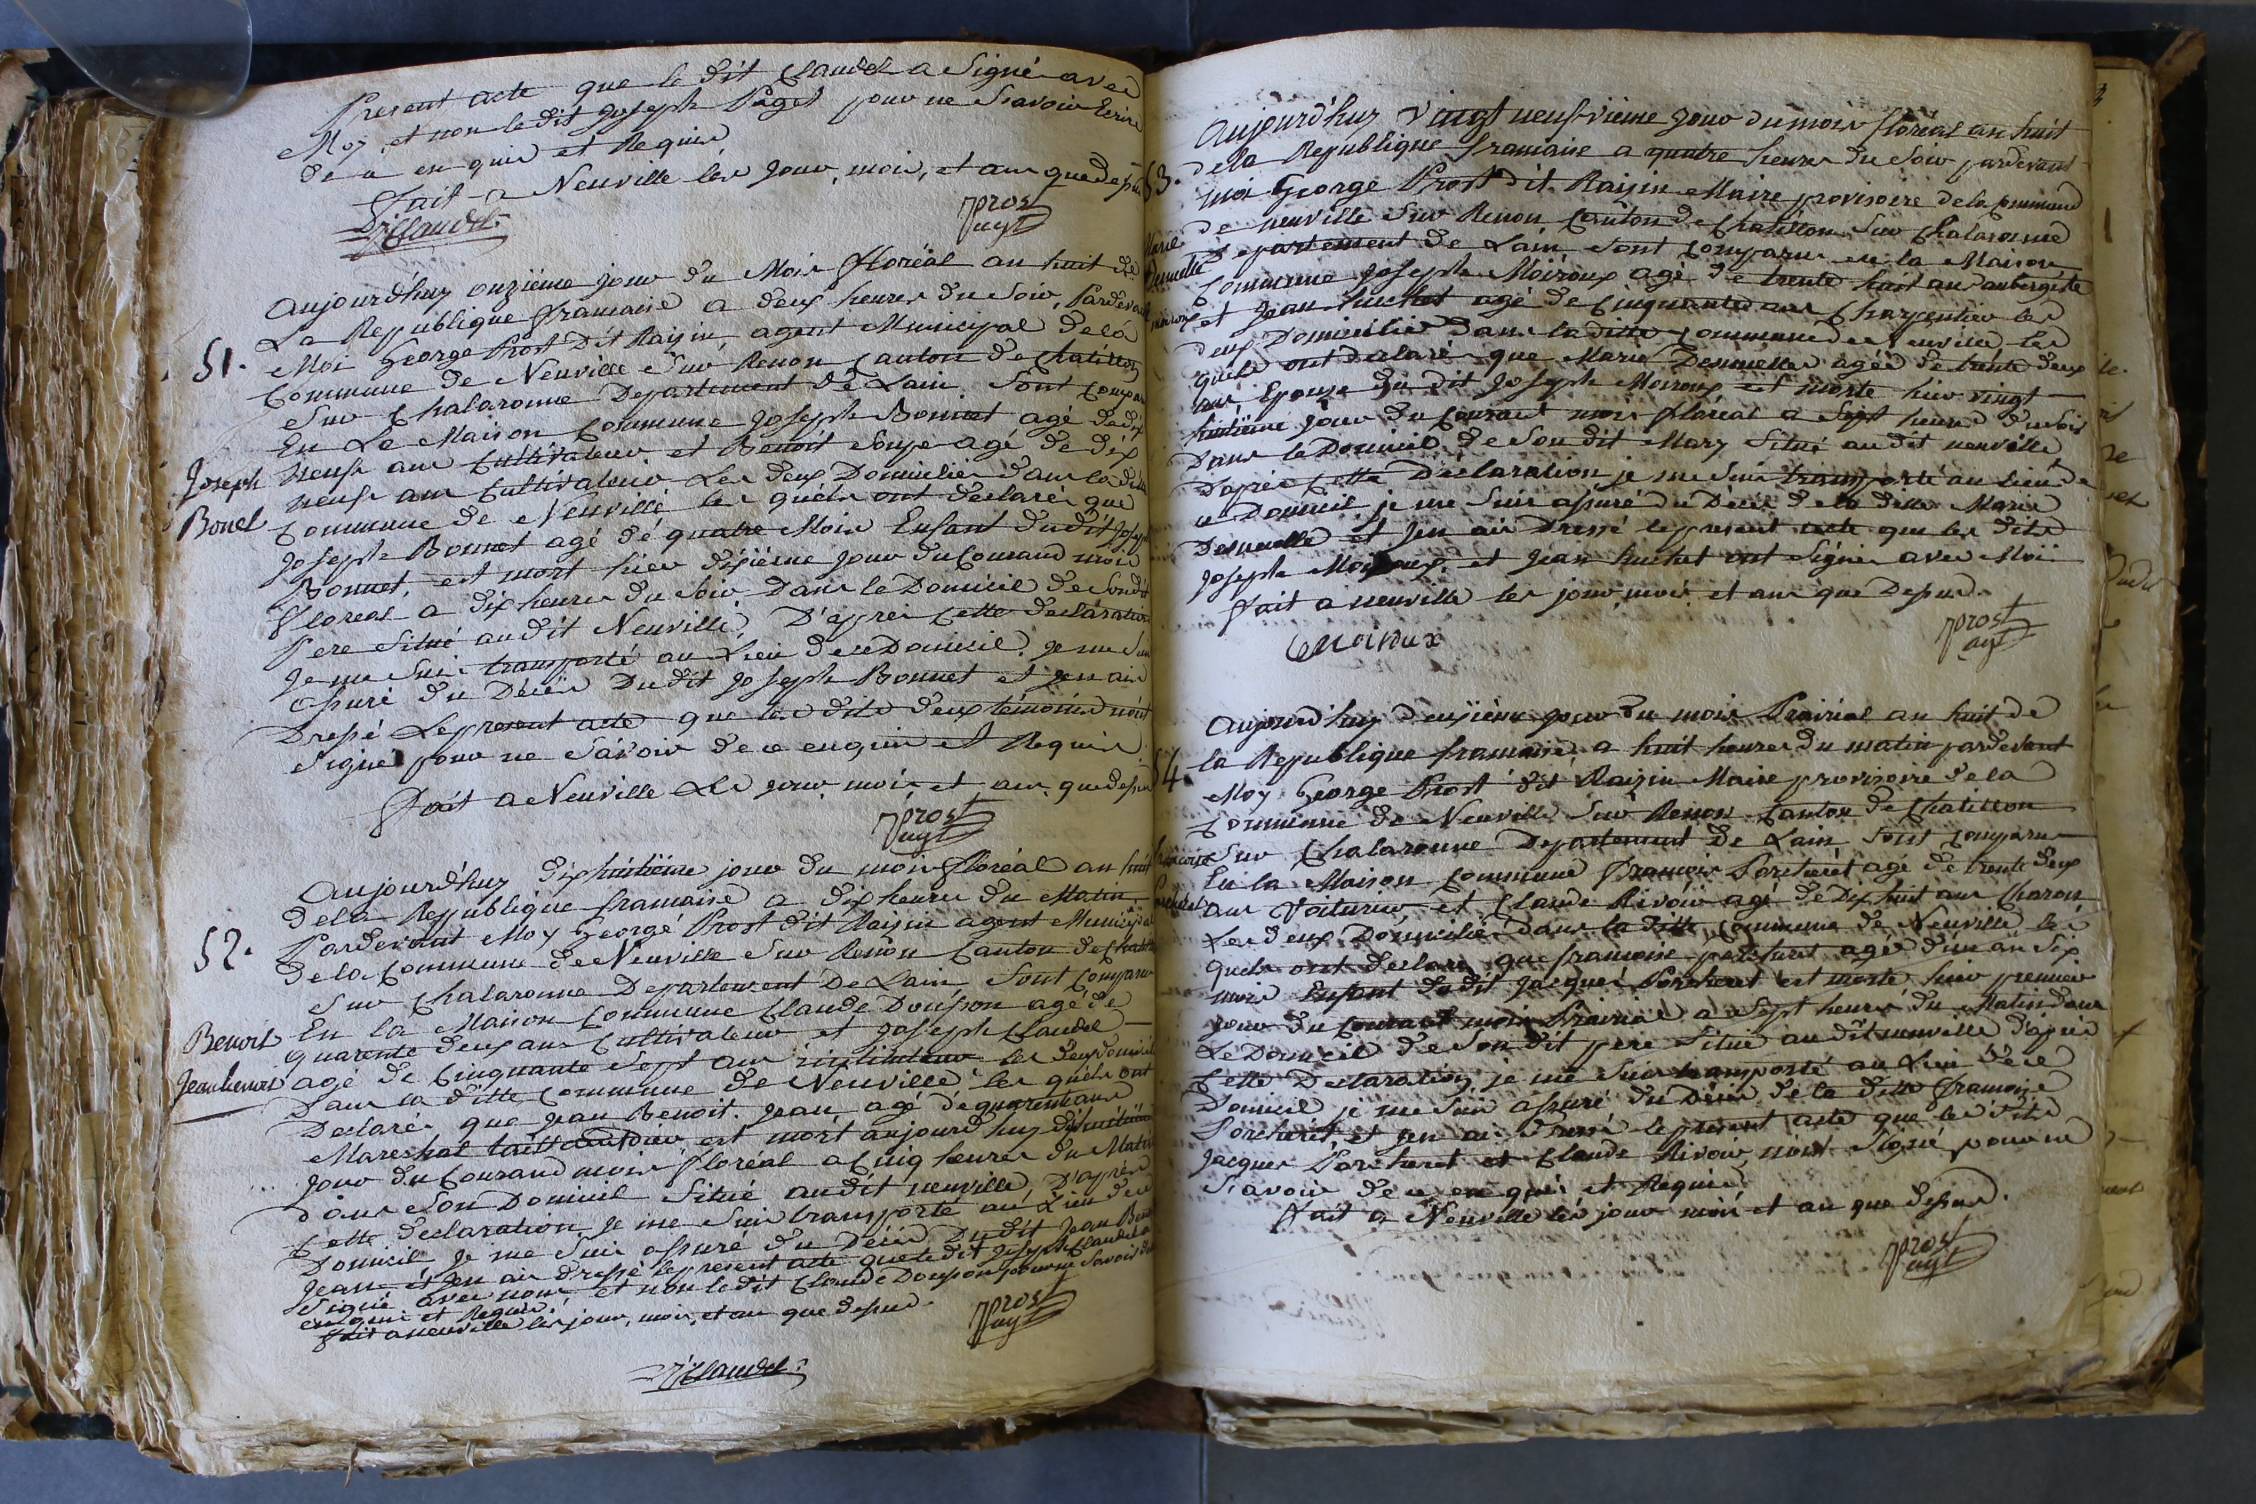 Present acte que le dit Claudel a Signé avec
Moy, et non le dit Joseph Paget pour ne Sçavoir Ecrire
de ce en quis et Requis
Fait a Neuville les Jour, mois, et an que depu
D: J: Claudel
Prost
agt
Aujourd'huy onzième jour du Mois floréal an huit de
La République francaise a deux heures du Soir, Pardevant
51.
Moi George Prost Dit Raisin, agent Municipal de la
Commune de Neuville Sur Renon Canton de Chatillon
Sur Chalaronne Departement de Lain Sont Compar
En Le Maison Commune Joseph Bonnet agé de dix
Joseph
neuf ans Cultivateur et Benoit agé de dix
Bonet
neufs ans Cultivateur Les deux Domicilies dans la ditte
Commune de Neuville les quels ont declarés que
Joseph Bonnet agé de quatre Mois Enfant du dit Joseph
Bonnet, est mort hier dixième jour du Courand mois
floreal a dix heures du Soir Dans le Domicil de Son dit
Pere Situé au dit Neuville, D'apres Cette declaration
Je me Suis transporté au Lieu de ce Domicil. Je me Suis
assuré du Décès Du dit Joseph Bonnet et Jen ais
Dressé Le present acte que les dits deux témoins nont
Signé pour ne Savoir de ce enquis et Requis
Fait a Neuville Les jour, mois et an que depu
Prost
agt
Aujourd'huy dix huitième jour du mois floréal an huit
de la République francaise a dix heures du Matin
52.
Pardevant Moy George Prost dit Raisin agent Municipal
de la Commune de Neuville Sur Renon Canton de Chatillon
Sur Chalaronne Departement De Lain, Sont Comparu
En la Maison Commune Claude agé de
Benoit
quarente deux ans Cultivateur et Joseph Claudel
Jean benoit
agé de Cinquante Sept ans instituteur les deux domicilié
Dans la ditte Commune de Neuville les quels ont
Declarés que Jean Benoit. Jean agé de quarente ans
Mareschal est mort aujourd'huy dixhuitième
jour du Courand mois floréal a Cinq heures du Matin
dans Son Domicil Situé au dit neuville, D'apres
Cette declaration Je me Suis transporté au Lieu de ce
Domicil, Je me Suis assuré du Décès Du dit Jean Benoit
Jean et Jen ais dressé le present acte que le dit Joseph Claudel a
Signé avec nous et non le dit Claude pour ne Savoir de ce
enquis et Requis.
Fait a neuville les jour, mois, et an que depus.
Prost
agt
D: J: Claudel
Aujourd'huy vingt neufvième jour du mois floréal an huit
53.
de la République francaise a quatre heures du Soir pardevant
moi George Prost dit Raizin Maire provisoire de la Commune
de neuville Sur Renon Canton de Chatillon Sur Chalaronne
Marie
Departement de Lain Sont Comparus en la Maison
Commune Joseph Moiroux agé de trente huit ans aubergiste
et Jean huchet agé de Cinquante ans Charpentier les
deux Domiciliés dans la ditte Commune de Neuville les
quels ont declarés que Marie agée de trente deux
ans Epouse du dit Joseph Moiroux est morte hier vingt
huitième jour du Courant mois floréal a Sept heures du Soir
Dans le Domicil de Son dit Mary Situé au dit neuville
D'après Cette Déclaration je me Suis transporté au Lieu de
ce Domicil je me Suis assuré du Décès de la ditte Marie
et Jen ais Dressé le present acte que les dits
Joseph Moiroux, et Jean huchet ont Signés avec Moi
Fait a neuville les jour, mois et an que Depus.
Moiroux
Prost
agt
Aujourd'huy deuxième jour du mois Prairial an huit de
54.
la République francaise, a huit heures du matin pardevant
Moy George Prost dit Raizin Maire provisoire de la
Commune de Neuville Sur Renon Canton de Chatillon
francoise
Sur Chalaronne Departement de Lain Sont Comparu
En la Maison Commune Porcheret agé de trente deux
Porcheret
ans Voiturier et Claude Rivoir agé de Dix huit ans Charon
Les deux Domiciliés dans la ditte Commune de Neuville les
quels ont declaré que francoise porcheret agée d'un an Six
mois Enfant du dit Jacques Porcheret est morte hier premier
jour du Courant mois Prairial a Sept heures du Matin dans
Le Domicil de Son dit pere Situé au dit neuville d'apres
Cette Declaration je me Suis transporté au Lieu de ce
Domicil je me Suis assuré du Décès de la ditte francoise
Porcheret, et Jen ais Dressé le present acte que les dits
Jacques Porcheret et Claude Rivoir, n'ont Signé pour ne
Savoir de ce en quis et Requis
Fait a Neuville les jour mois et an que depus.
Prost
agt